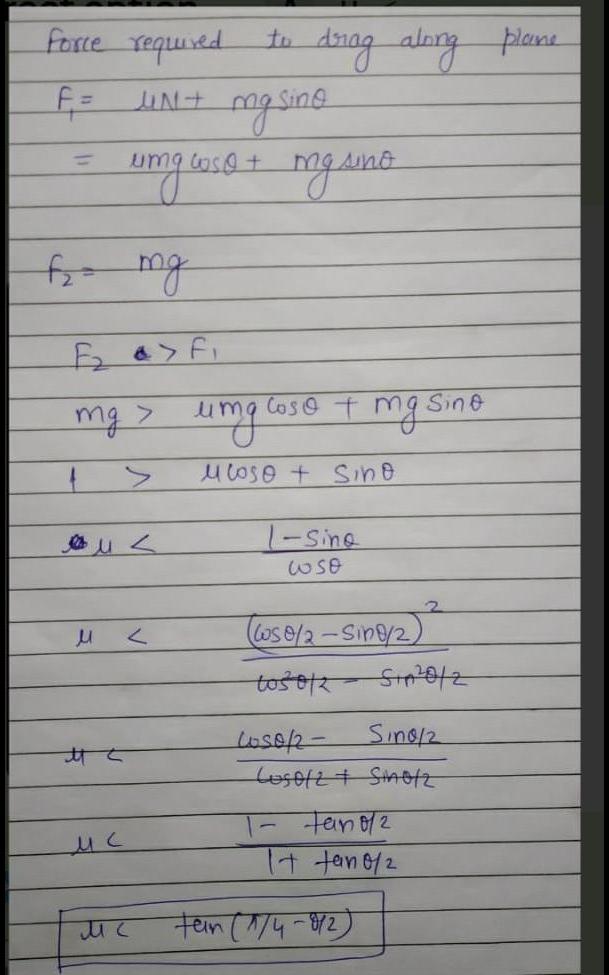 Force required to drag along plane
F₁ = μN + mg sinθ
= μmg cosθ + mg sinθ
F₂ = mg
F₂ > F₁
mg > μmg cosθ + mg sinθ
1 > μcosθ + sinθ
μ < (1 - sinθ) / cosθ
μ < (cosθ/2 - sinθ/2)² / (cos²θ/2 - sin²θ/2)
μ < (cosθ/2 - sinθ/2) / (cosθ/2 + sinθ/2)
μ < (1 - tanθ/2) / (1 + tanθ/2)
μ < tan(π/4 - θ/2)